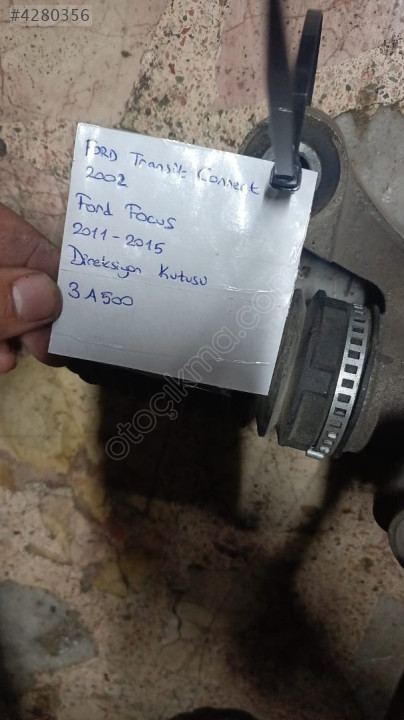 #4280356
FORD Transit Connect
2002
Ford Focus
2011-2015
Direksiyon Kutusu
3A500
otoçıkma.com